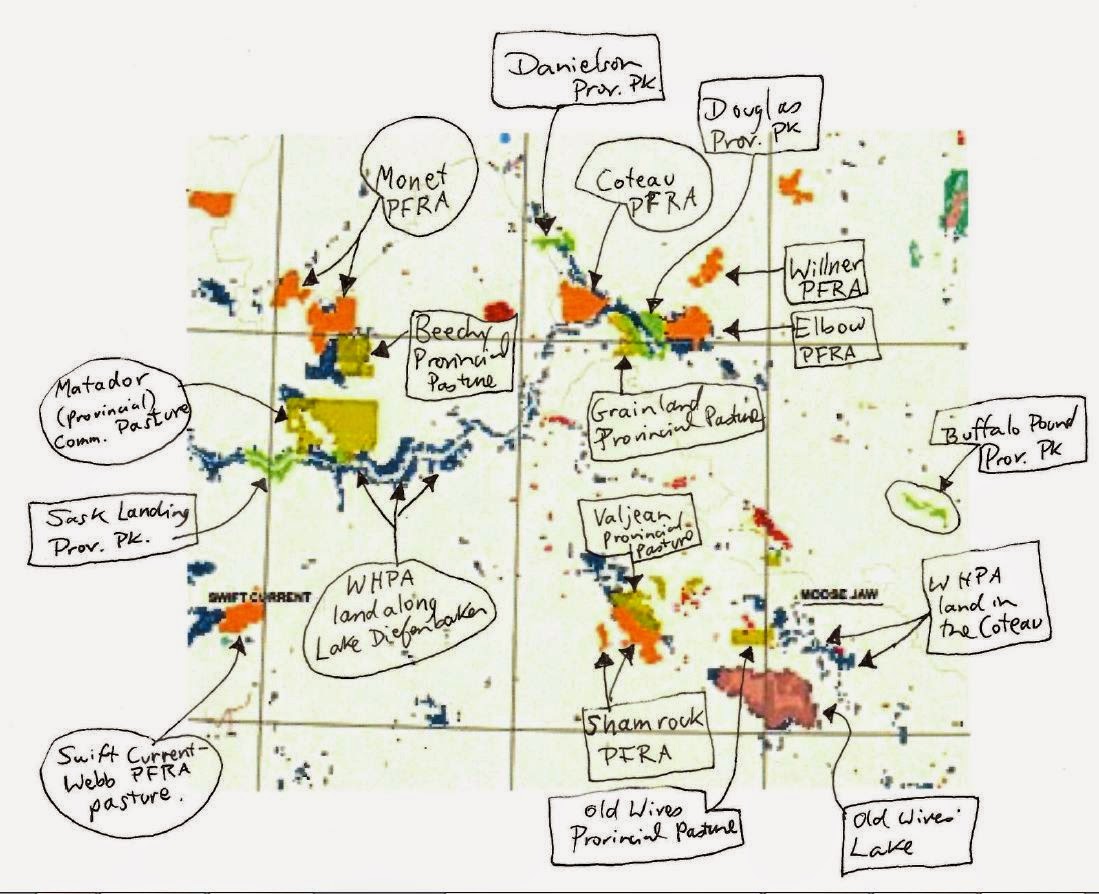 Danielson
Prov. Pk.
Douglas
Prov. Pk
Monet
PFRA
Coteau
PFRA
Willner
PFRA
Elbow
PFRA
Beechy
Provincial
Pasture
Matador
(Provincial)
Comm. Pasture
Grainland
Provincial Pasture
Buffalo Pound
Prov. Pk
Sask Landing
Prov. Pk.
Valjean
Provincial
Pasture
WHPA
land along
Lake Diefenbaker
SWIFT CURRENT
MOOSE JAW
WHPA
land in
the Coteau
Shamrock
PFRA
Swift Current-
Webb PFRA
pasture.
Old Wives
Provincial Pasture
Old Wives'
Lake